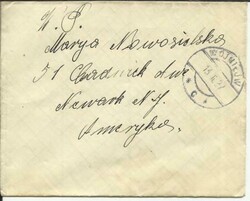 W. P.
Marya Nowosielska
51 Chadwick Ave
Newark N.J.
Ameryka.
WOJNICZ